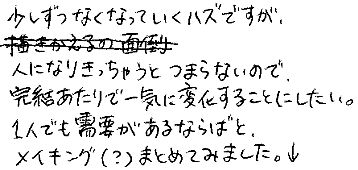 少しずつなくなっていくハズですが、
描きかえるの面倒
人になりきっちゃうとつまらないので、
完結あたりで一気に変化することにしたい。
1人でも需要があるならばと、
メイキング(?)まとめてみました。↓